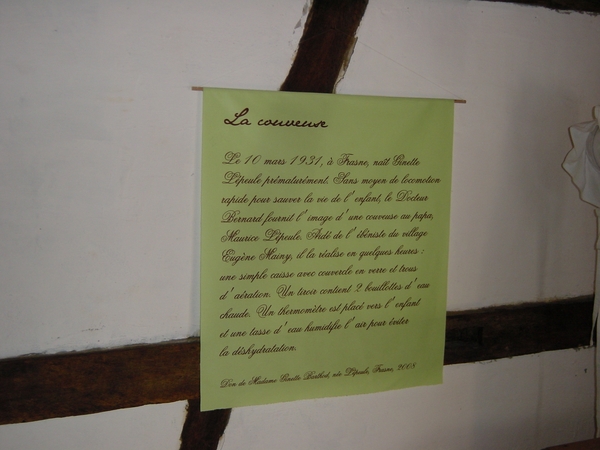 La couveuse
Le 10 mars 1931, à Frasne, naît Ginette
Lépeule prématurément. Sans moyen de locomotion
rapide pour sauver la vie de l'enfant, le Docteur
Bernard fournit l'image d'une couveuse au papa,
Maurice Lépeule. Aidé de l'ébéniste du village
Eugène Mainy, il la réalise en quelques heures :
une simple caisse avec couvercle en verre et trous
d'aération. Un tiroir contient 2 bouillottes d'eau
chaude. Un thermomètre est placé vers l'enfant
et une tasse d'eau humidifie l'air pour éviter
la déshydratation.
Don de Madame Ginette Berthod, née Lépeule, Frasne, 2008